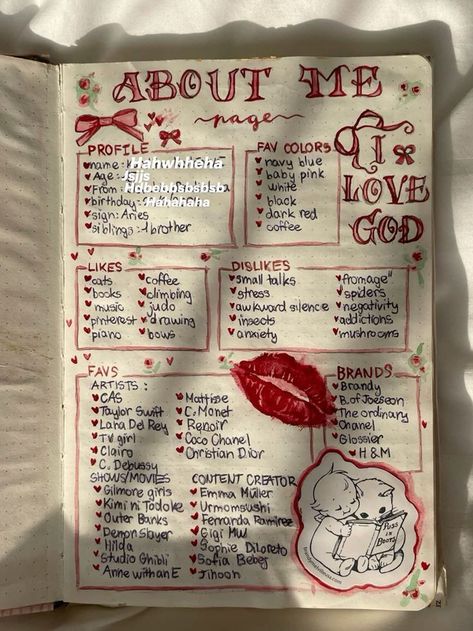 ABOUT ME
page
PROFILE
name:
Hahwhheha
Age:
Jsjjs
From
Hdbebpbsbsbsb
birthday:
Hahahaha
sign: Aries
siblings: 1 brother
FAV COLORS
navy blue
baby pink
white
black
dark red
coffee
I
LOVE
GOD
LIKES
cats
books
music
pinterest
piano
coffee
climbing
judo
drawing
bows
DISLIKES
small talks
stress
awkward silence
insects
anxiety
"fromage"
spiders
negativity
addictions
mushrooms
FAVS
ARTISTS:
CAS
Taylor Swift
Lana Del Rey
TV girl
Clairo
C. Debussy
Mattise
C. Monet
Renoir
Coco Chanel
Christian Dior
SHOWS/MOVIES
Gilmore girls
Kimi ni Todoke
Outer Banks
Demon slayer
Hilda
Studio Ghibli
Anne with an E
CONTENT CREATOR
Emma Müller
Urmomsushi
Fernanda Ramirez
Gigi MW
Sophie DiLoreto
Sofia Bebej
Jihoon
BRANDS
Brandy
B. of Joeseon
The ordinary
Chanel
Glossier
H & M
Puss
in
Boots